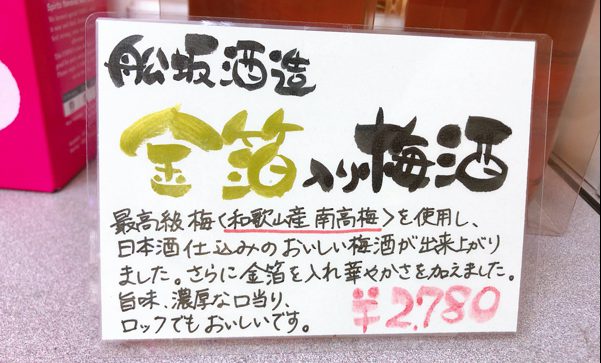 舩坂酒造
金箔入り梅酒
最高級梅〈和歌山産南高梅〉を使用し、
日本酒仕込みのおいしい梅酒が出来上がり
ました。さらに金箔を入れ華やかさを加えました。
旨味、濃厚な口当り、
ロックでもおいしいです。
¥2,780